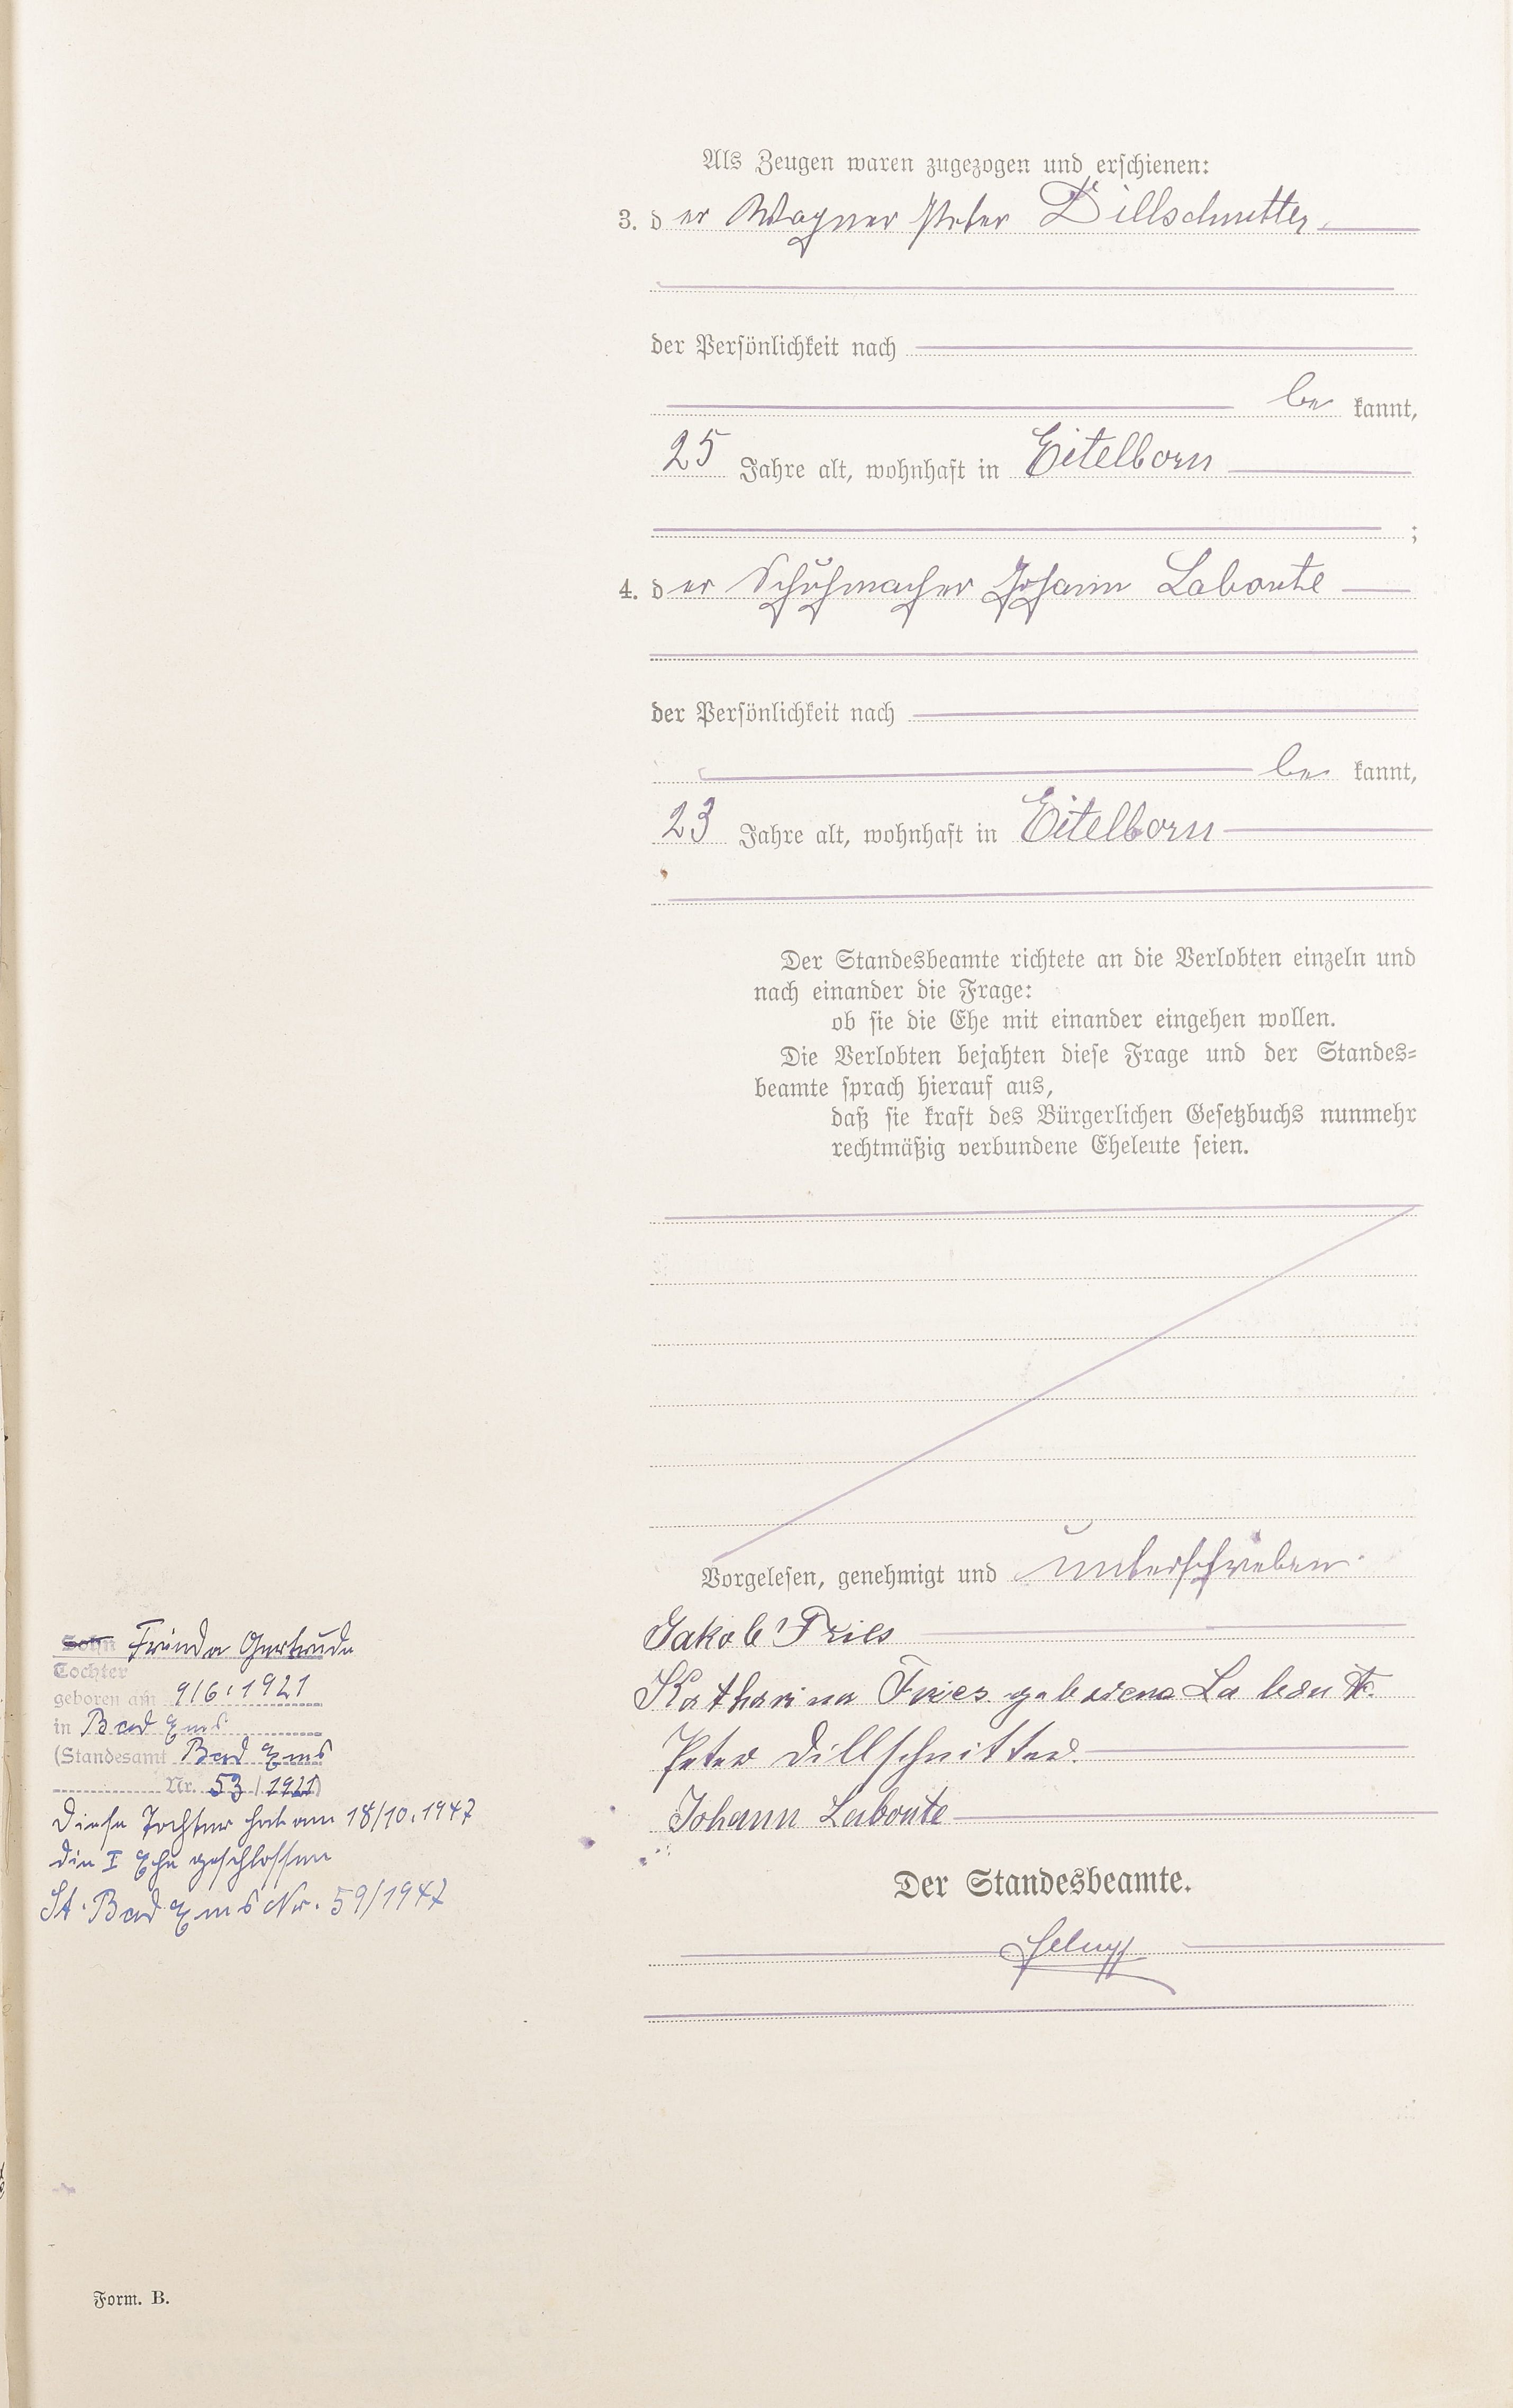 Als Zeugen waren zugezogen und erschienen:
3. der Wagner Peter Dillschnitter
der Persönlichkeit nach
be kannt,
25 Jahre alt, wohnhaft in Eitelborn
;
4. der Schuhmacher Johann Labonte
der Persönlichkeit nach
be kannt,
23 Jahre alt, wohnhaft in Eitelborn
Der Standesbeamte richtete an die Verlobten einzeln und
nach einander die Frage:
ob sie die Ehe mit einander eingehen wollen.
Die Verlobten bejahten diese Frage und der Standes=
beamte sprach hierauf aus,
daß sie kraft des Bürgerlichen Gesetzbuchs nunmehr
rechtmäßig verbundene Eheleute seien.
Vorgelesen, genehmigt und unterschrieben.
Jakob Fries
Katharina Fries geborene Labonte.
Peter Dillschnitter.
Johann Labonte
Der Standesbeamte.
Sohn Gertrude
Tochter
geboren am 9/6.1921
in Bad Ems
(Standesamt Bad Ems
Nr. 53/1921)
Diese Tochter hat am 18/10.1947
die I Ehe geschlossen
St. Bad Ems Nr. 59/1947
Form. B.